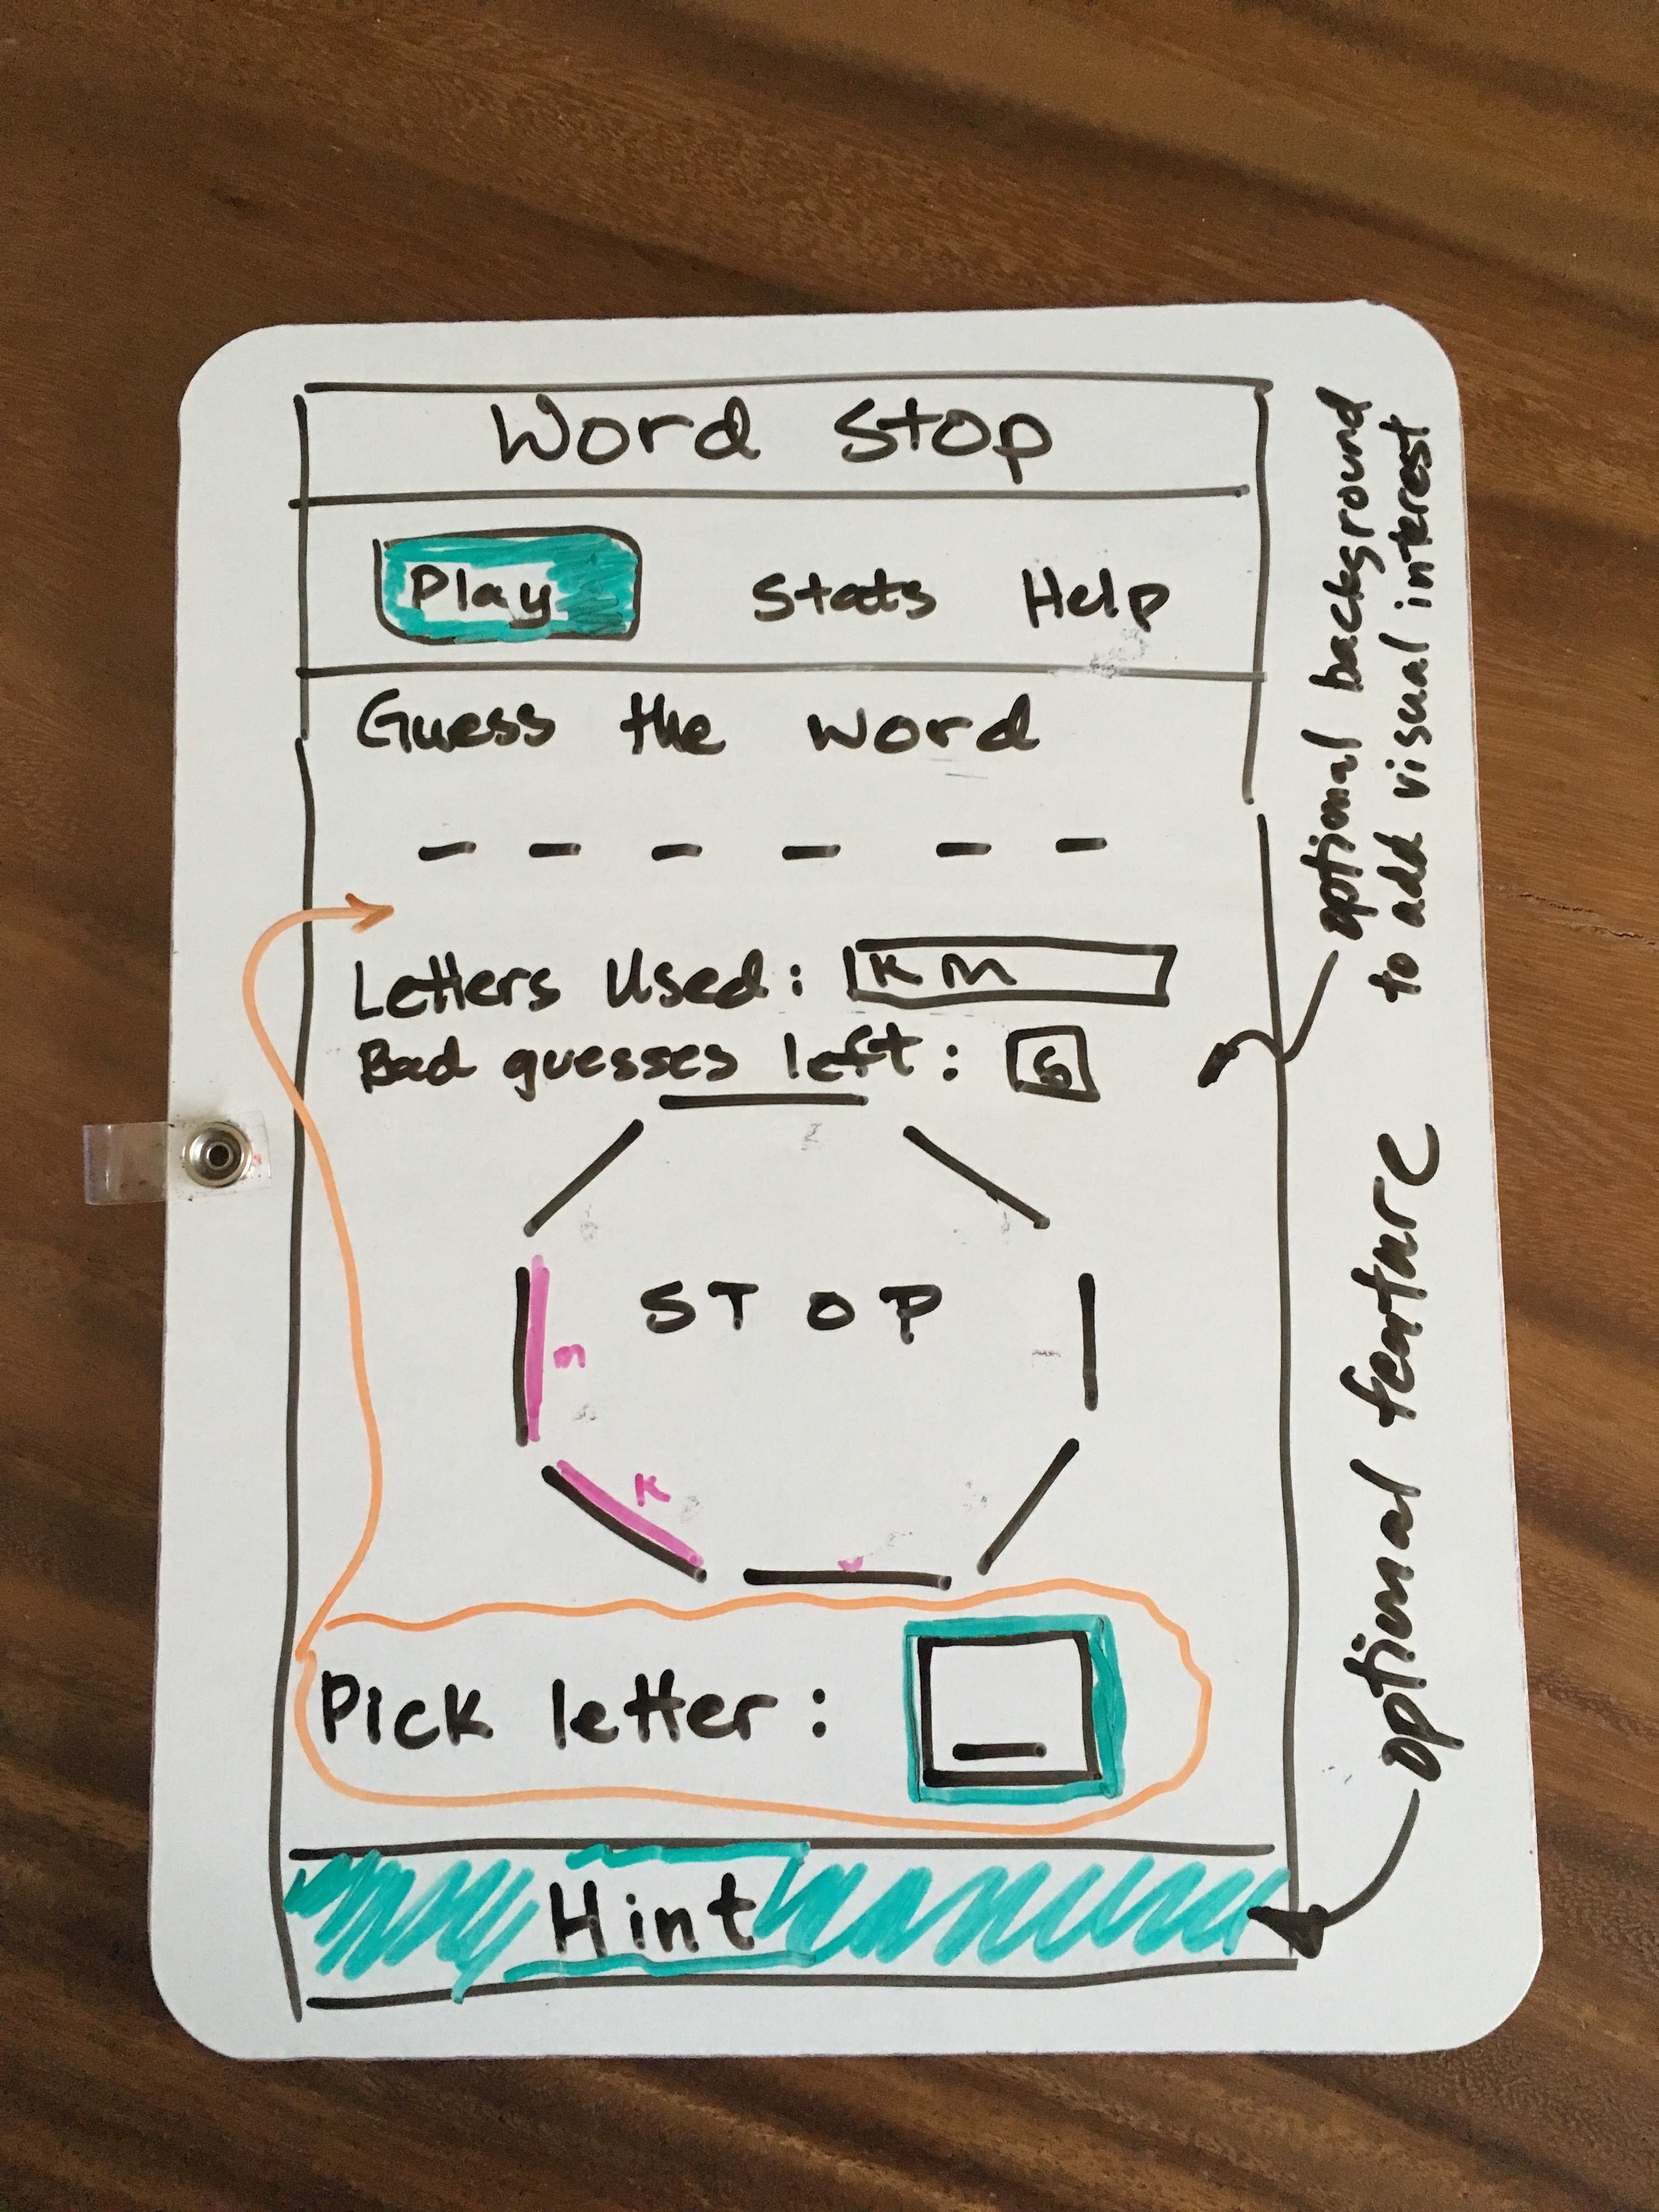 Word Stop
Play Stats Help
Guess the word
Letters Used: K M
Bad guesses left: 6
S T O P
m
K
Pick letter:
Hint
optional background
to add visual interest
optional feature